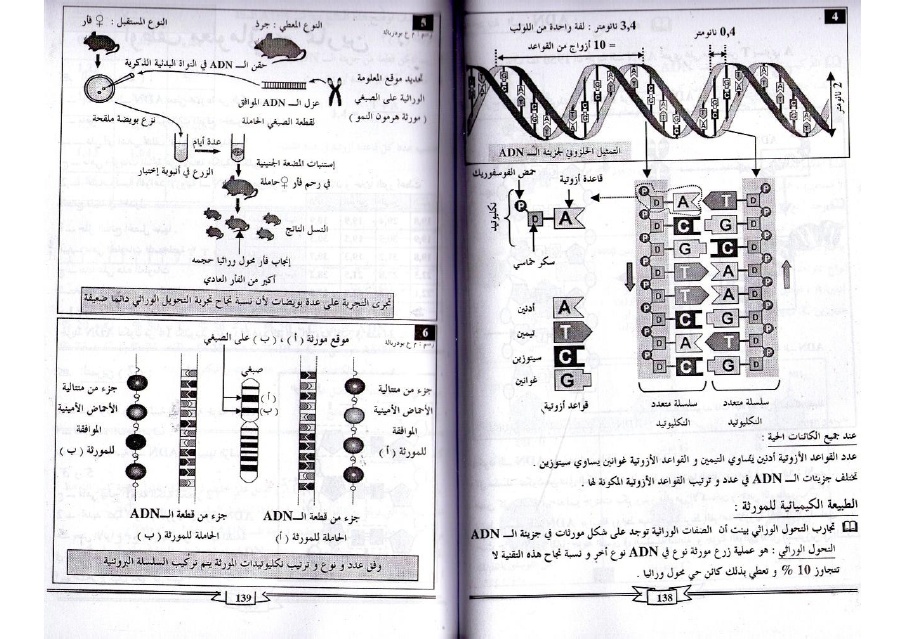 4
3,4 نانومتر : لفة واحدة من اللولب
= 10 أزواج من القواعد
0,4 نانومتر
2 نانومتر
التمثيل الحلزوني لجزيئة الـ ADN
حمض الفوسفوريك
قاعدة أزوتية
نكليوتيد
P
D
A
سكر خماسي
أدنين
A
تيمين
T
سيتوزين
C
غوانين
G
قواعد أزوتية
A T
C G
G C
T A
T A
C G
A T
C G
سلسلة متعدد
النكليوتيد
سلسلة متعدد
النكليوتيد
عند جميع الكائنات الحية :
عدد القواعد الأزوتية أدنين يساوي التيمين و القواعد الأزوتية غوانين يساوي سيتوزين .
تختلف جزيئات الـ ADN في عدد و ترتيب القواعد الأزوتية المكونة لها .
الطبيعة الكيميائية للمورثة :
تجارب التحول الوراثي بينت أن الصفات الوراثية توجد على شكل مورثات في جزيئة الـ ADN
التحول الوراثي : هو عملية زرع مورثة نوع في ADN نوع أخر و نسبة نجاح هذه التقنية لا
تتجاوز 10 % و تعطي بذلك كائن حي محول وراثيا .
138
5
رسم : م ع بودربالة
النوع المعطي : جرذ
النوع المستقبل : ♀ فأر
حقن الـ ADN في النواة البدئية الذكرية
تحديد موقع المعلومة
الوراثية على الصبغي
( مورثة هرمون النمو )
عزل الـ ADN الموافق
لقطعة الصبغي الحاملة
نزع بويضة ملقحة
عدة أيام
الزرع في أنبوبة إختبار
إستنبات المضغة الجنينية
في رحم فأر ♀ حاملة
النسل الناتج
إنجاب فأر محول وراثيا حجمه
أكبر من الفأر العادي
تجرى التجربة على عدة بويضات لأن نسبة نجاح تجربة التحويل الوراثي دائما ضعيفة
6
رسم : م ع بودربالة
موقع مورثة ( أ ) ، ( ب ) على الصبغي
صبغي
( أ )
( ب )
جزء من متتالية
الأحماض الأمينية
الموافقة
للمورثة ( أ )
جزء من متتالية
الأحماض الأمينية
الموافقة
للمورثة ( ب )
جزء من قطعة الـ ADN
الحاملة للمورثة ( أ )
جزء من قطعة الـ ADN
الحاملة للمورثة ( ب )
وفق عدد و نوع و ترتيب نكليوتيدات المورثة يتم تركيب السلسلة البروتية
139